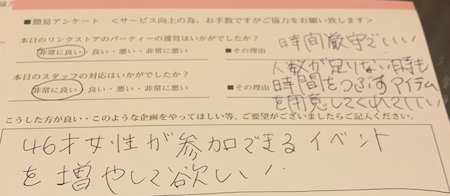 ■簡易アンケート <サービス向上の為。お手数ですがご協力をお願い致します>
本日のリンクストアのパーティーの運営はいかがでしたか?
非常に良い・良い・悪い・非常に悪い ■その理由
時間厳守でしい!
本日のスタッフの対応はいかがでしたか?
非常に良い・良い・悪い・非常に悪い ■その理由
人数が足りない時も
時間をつぶすアイテム
を用意してくれてしい
こうした方が良い・このような企画をやってほしい等、ご要望がございましたらご記入ください。
46才女性が参加できるイベント
を増やして欲しい!